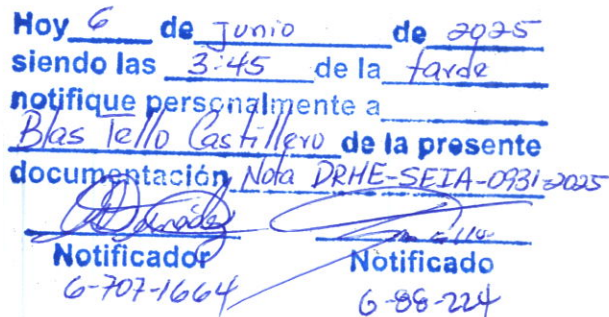 Hoy 6 de Junio de 2025
siendo las 3:45 de la tarde
notifique personalmente a
Blas Tello Castillero de la presente
documentación Nota DRHE-SEIA-0931-2025
Notificador Notificado
6-707-1664 6-88-224